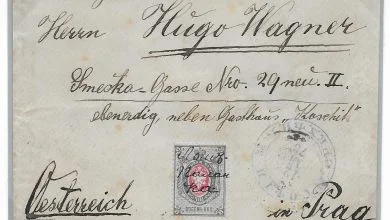 Herrn Hugo Wagner
Smeska-Gasse Nro. 29 neu. II.
ebenerdig, neben Gasthaus „Koschik“
Oesterreich in Prag